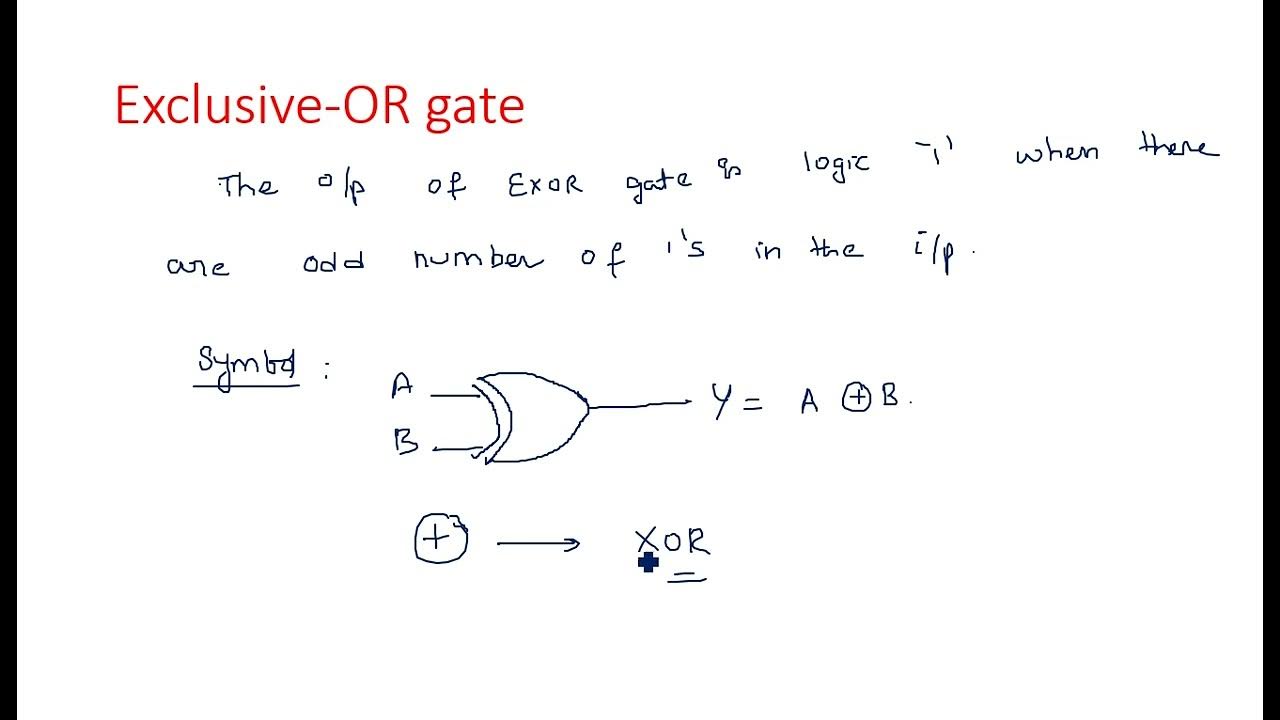 Exclusive-OR gate
The o/p of EXOR gate is logic '1' when there
are odd number of 1's in the i/p.
Symbol :
A
B
Y = A ⊕ B.
⊕ → XOR